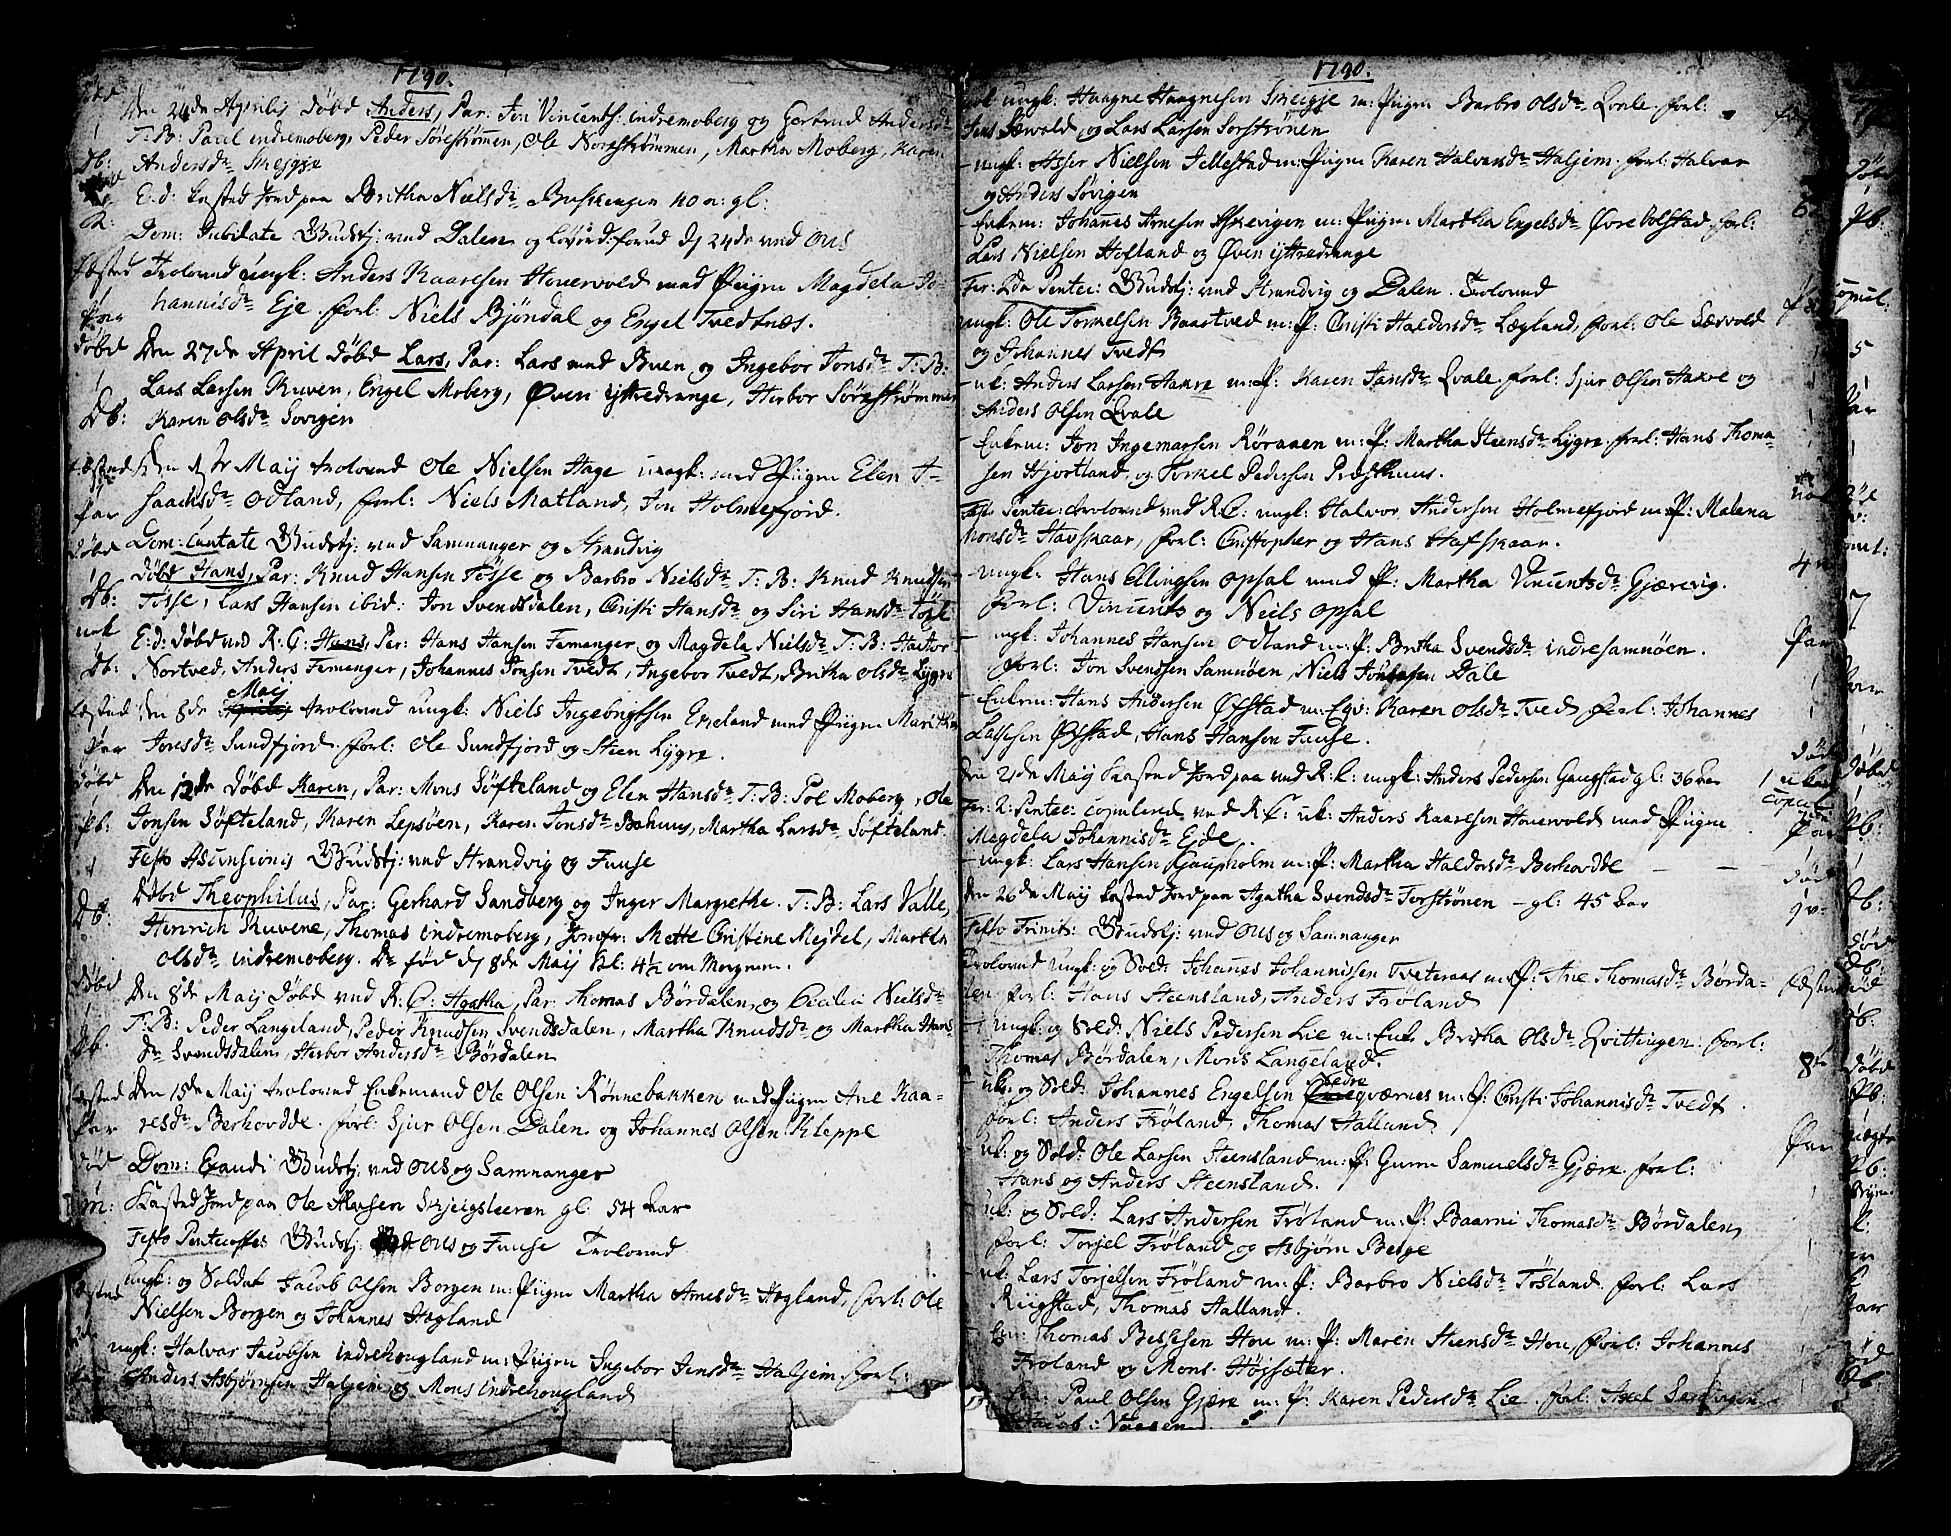 1790.
Den 24de Aprilis Døbd Anders, Par: Jon Vincents: indremoberg og Gertrud Andersdr
T: B: Paul indremoberg, Peder Sørestrømen, Ole Norestrømmen, Martha Moberg, Karen
Andersdr Skejgje
E.d: kasted Jord paa Britha Nielsdr Buskengen 40 a: gl:
Dom: Jubilate Gudstj: ved Dalen og Løverd: forud d 24de ved Ous
Troloved ungk: Anders Kaaresen Houevold med Piigen Magdela Jo-
hannisdr Eje. forl: Niels Bjöndal og Engel Tvedtnæs.
Den 27de April Døbd Lars, Par: Lars med Buen og Ingebor Jonsdr T: B:
Lars Larsen Ruven, Engel Moberg, Øven ijttredrange, Herbor Sørestrømmen
Karen Olsdr Sovigen
Maij trolovd Ole Nielsen Hage ungk: med Piigen Elen I-
saachsdr Odland, forl: Niels Matland, Jon Holmefjord.
Dom: Cantate Gudstj: ved Samnanger og Strandvig
Døbd Hans, Par: Knud Hansen Tösse og Barbro Nielsdr T: B: Knud Knudsen
Tösse, Lars Hansen ibid: Jon Svendsdalen, Cristi Hansdr og Siri Hansdr
E: d: Døbd ved R: C: Hans, Par: Hans Hansen Femanger og Magdela Nielsdr T: B:
Nortved, Anders Femanger, Johannes Jonsen Tvedt, Ingebor Tvedt, Britha Olsdr Lygre
Den 8de Maij trolovd ungk: Niels Ingebrigtsen Eikeland med Piigen Maritha
Jonsdr Sundfjord. forl: Ole Sundfjord og Steen Lygre.
Den 12te Døbd Karen, Par: Mons Söfteland og Elen Hansdr T: B: Pol Moberg, Ole
Jonsen Söfteland, Karen Lepsöen, Karen Jonsdr Bahuus, Martha Larsdr Söfteland.
Festo Ascensionis Gudstj: ved Strandvig og Fuuse
Døbd Theophilus, Par: Gerhard Sandberg og Inger Margrethe. T: B: Lars Valle,
Henrich Ruvene, Thomas indremoberg, Jomfr: Mette Cristine Mejdel, Martha
Olsdr indremoberg. Dr fød d 8de Maij Kl: 4½ om Morgnen.
Den 8de Maij Døbd ved R: C: Agatha, Par: Thomas Børdalen, og Cecilia Nielsdr
T: B: Peder Langeland, Peder Knudsen Svendsdalen, Martha Knudsdr og Martha Hans-
dr Svendsdalen, Herbor Andersdr Børdalen
Den 15de Maij trolovd Enkemand Ole Olsen Rönnebakken med Piigen Ane Kaa-
resdr Berhovdde. forl: Sjur Olsen Dalen og Johannes Olsen Kleppe
Dom: Exaudi Gudstj: ved Ous og Samnanger
Kasted Jord paa Ole Skjeigsleeren gl: 54 Aar
Festo Pentecostes Gudstj: ved Ous og Fuuse Trolovd
ungk: og Soldat Jacob Olsen Borgen m: Piigen Martha Arnesdr Høgland, forl: Ole
Nielsen Borgen og Johannes Høgland
ungk: Halvar Jacobsen indrehougland m: Piigen Ingebor Jensdr Haljem, forl:
Anders Asbjørnsen Haljem og Mons indrehougland
1790.
ungk: Haagne Haagnesen Skeigje m: Piigen Barbro Olsdr Qvale. forl:
Jens Særvold og Lars Larsen Sorströnen
- ungk: Asser Nielsen Jellestad m: Piigen Karen Halvarsdr Haljem. forl: Halvar
og Anders Søvigen
- Enkem: Johannes Arnesen Askevigen m: Piigen Martha Engelsdr Øvre Volstad forl:
Lars Nielsen Hofland og Øven ijttredrange
Fer: 2da Pentec: Gudstj: ved Strandvig og Dalen. Trolovd
ungk: Ole Torkelsen Baartved m: P: Cristi Haldorsdr Lægland, forl: Ole Særvold
og Johannes Tvedt
- uk: Anders Larsen Haare m: P: Karen Jansdr Qvale. forl: Sjur Olsen Haare og
Anders Olsen Qvale
- Enkem: Jon Ingemarsen Røraaen m: P: Martha Steensdr Lygre. forl: Hans Thoma-
sen Hjortland, og Torkel Pedersen Præsthuus.
Pentec: trolovd ved R: C: ungk: Halvor Andersen Holmefjord m: P: Malena
Monsdr Havskaar, forl: Cristopher og Hans Hafskaar.
- ungk: Hans Ellingsen Opsal med P: Martha Vincentsdr Gjærevig.
forl: Vincents og Niels Opsal
- ungk: Johannes Hansen Odland m: P: Britha Svendsdr indresamnöen.
forl: Jon Svendsen Samnöen, Niels Dale
- Enkem: Hans Andersen Øfstad m: Eqv: Karen Olsdr Tved forl: Johannes
Lassesen Øfstad, Hans Hansen Fuuse.
Den 21de Maij kasted Jord paa ved R: C: ungk: Anders Pedersen Gaugstad gl: 36 Aar
Fer: 2: Pentec: copulered ved R: C: uk: Anders Kaaresen Houevold med Piigen
Magdela Johannisdr Eide.
- ungk: Lars Hansen Gaupholm m: P: Martha Haldorsdr Berhovdde
Den 26de Maij kasted Jord paa Agatha Svendsdr Torströnen - gl: 45 Aar
Festo Trinit: Gudstj: ved Ous og Samnanger
Trolovd Ungk: og Sold: Johannes Johannissen Tveteraas m: P: Ane Thomasdr Børda-
len. forl: Hans Steensland, Anders Frøland
- Ungk: og Sold: Niels Pedersen Lie m: Enke Britha Olsdr Qvittingen. forl:
Thomas Børdalen, Mons Langeland.
- uk: og Sold: Johannes Engelsen Nedre Qværnes m: P: Cristi Johannisdr Tvedt
forl: Anders Frøland, Thomas Aalland.
uk: og Sold: Ole Larsen Steensland m: P: Guren Samuelsdr Gjære. forl:
Hans og Anders Steensland.
- uk: og Sold: Lars Andersen Frøland m: P: Baarni Thomasdr Børdalen,
forl: Torjel Frøland og Asbjørn Berge
- uk: Lars Torjelsen Frøland m: P: Barbro Nielsdr Tösland. forl: Lars
Riigstad, Thomas Aalland.
- En: Thomas Besesen Hou m: P: Maren Steensdr Hou, forl: Johannes
Frøland og Mons Høysæter.
Paul Olsen Gjære m: P: Karen Pedersdr Lie. forl: Axel
Jacob Naasen